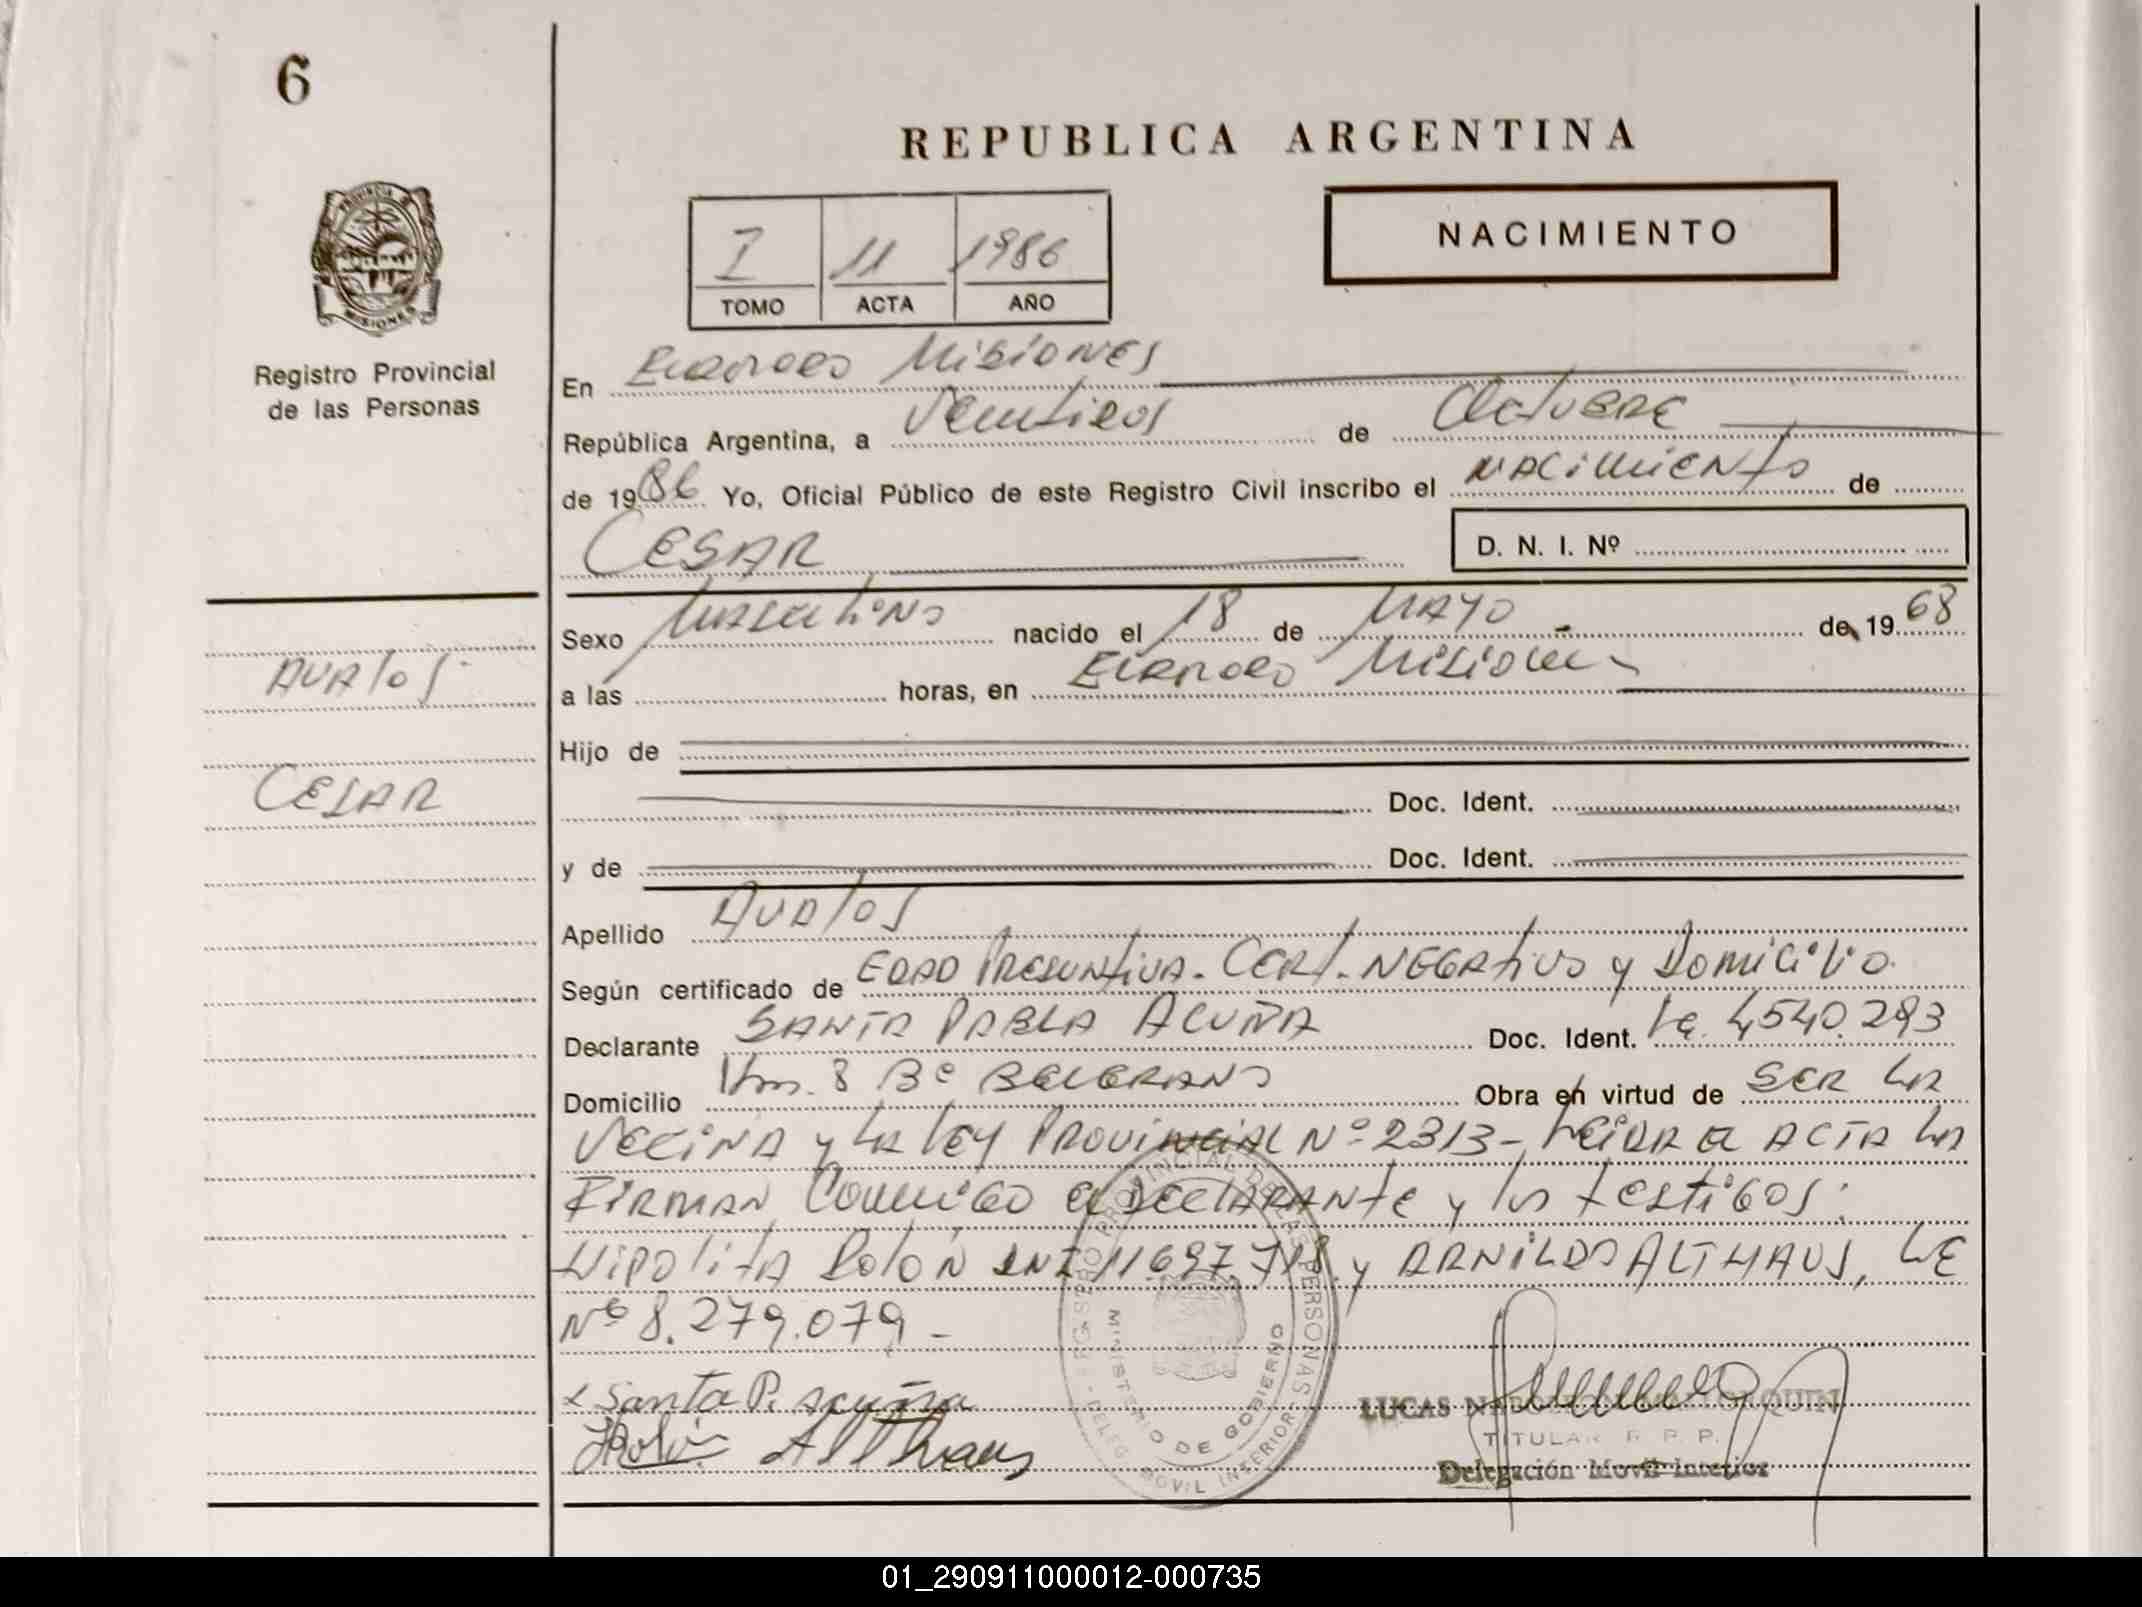 6
REPUBLICA ARGENTINA
NACIMIENTO
I 11 1986
TOMO ACTA AÑO
PROVINCIA
MISIONES
Registro Provincial
de las Personas
En Eldorado Misiones
República Argentina, a Veintidos de Octubre
de 1986 Yo, Oficial Público de este Registro Civil inscribo el nacimiento de
CESAR D. N. I. Nº
Sexo Masculino nacido el 18 de Mayo de 1968
a las horas, en Eldorado Misiones
Hijo de
Doc. Ident.
y de Doc. Ident.
AVALOS
CESAR
Apellido AVALOS
Según certificado de EDAD Presuntiva. Cert. NEGAtivo y Domicilio
Declarante SANTA PABLA ACUÑA Doc. Ident. Lc. 4540.293
Domicilio Km. 8 Bº BELGRANO Obra en virtud de SER LA
VECINA y LA LEY PROVINCIAL Nº 2313- LEIDA el ACTA LA
FIRMAN Conmigo el DECLARANte y los testigos:
Hipolita Dolon DNI 11.697.718 y ARNILDO ALTHAUS, LE
Nº 8.279.079 -
x Santa P. acuña
Althaus
REGISTRO PROVINCIAL DE LAS PERSONAS
MINISTERIO DE GOBIERNO
DELEG. MOVIL INTERIOR
LUCAS
TITULAR R. P. P.
Delegación Movil Interior
01_290911000012-000735